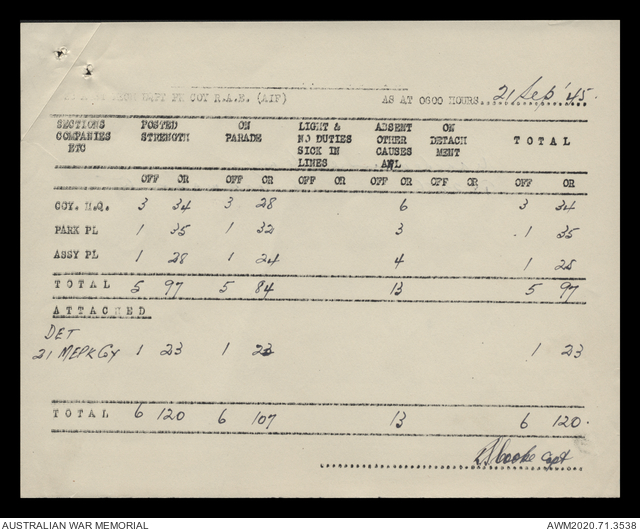 COY R.A.E. (AIF) AS AT 0600 HOURS. 21 Sep '45.
SECTIONS COMPANIES ETC POSTED STRENGTH ON PARADE LIGHT & NO DUTIES SICK IN LINES ABSENT OTHER CAUSES AWL ON DETACH MENT TOTAL
OFF OR OFF OR OFF OR OFF OR OFF OR OFF OR
COY. H.Q. 3 34 3 28 6 3 34
PARK PL 1 35 1 32 3 1 35
ASSY PL 1 28 1 24 4 1 28
TOTAL 5 97 5 84 13 5 97
ATTACHED
DET
21 MEPK Coy 1 23 1 23 1 23
TOTAL 6 120 6 107 13 6 120.
Cooke Capt
AUSTRALIAN WAR MEMORIAL AWM2020.71.3538